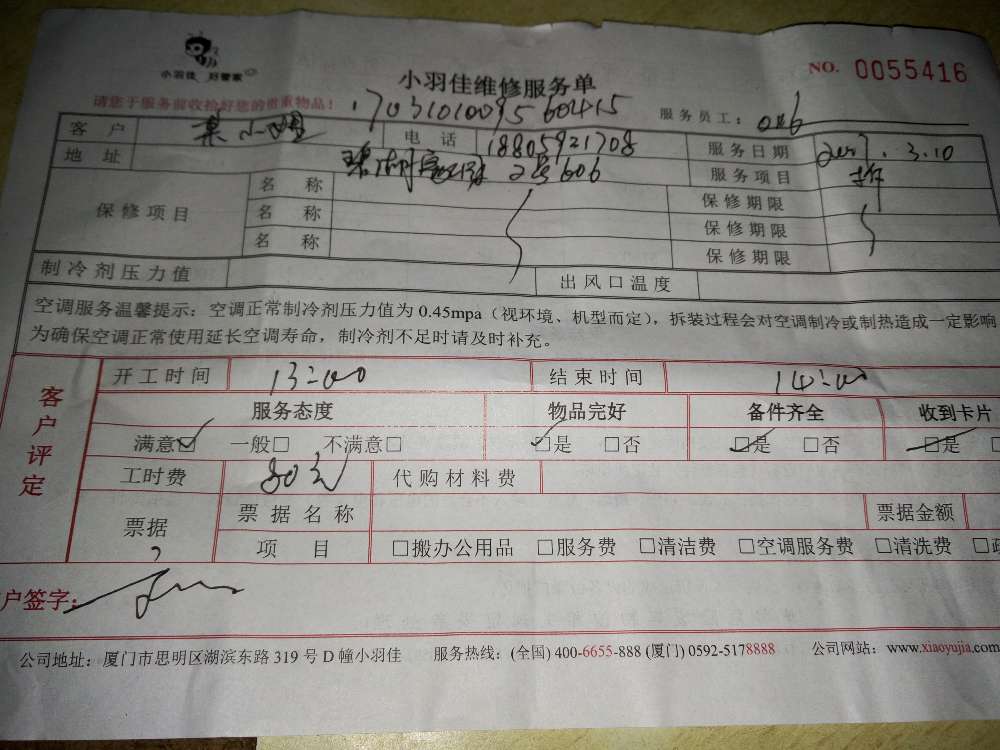 小羽佳 好管家
小羽佳维修服务单
NO. 0055416
请您于服务前收拾好您的贵重物品！
17031010095604415
服务员工：046
客 户 电 话 18805921708 服务日期 2017.3.10
地 址 2号606 服务项目
保修项目 名 称 保修期限
名 称 保修期限
名 称 保修期限
制冷剂压力值 出风口温度
空调服务温馨提示：空调正常制冷剂压力值为 0.45mpa（视环境、机型而定），拆装过程会对空调制冷或制热造成一定影响
为确保空调正常使用延长空调寿命，制冷剂不足时请及时补充。
客户评定
开工时间 13:00 结束时间 14:00
服务态度 物品完好 备件齐全 收到卡片
满意☑ 一般□ 不满意□ ☑是 □否 ☑是 □否 ☑是
工时费 80元 代购材料费
票据 票据名称 票据金额
项 目 □搬办公用品 □服务费 □清洁费 □空调服务费 □清洗费
户签字：
公司地址：厦门市思明区湖滨东路 319 号 D 幢小羽佳 服务热线：(全国) 400-6655-888 (厦门) 0592-5178888 公司网站：www.xiaoyujia.com